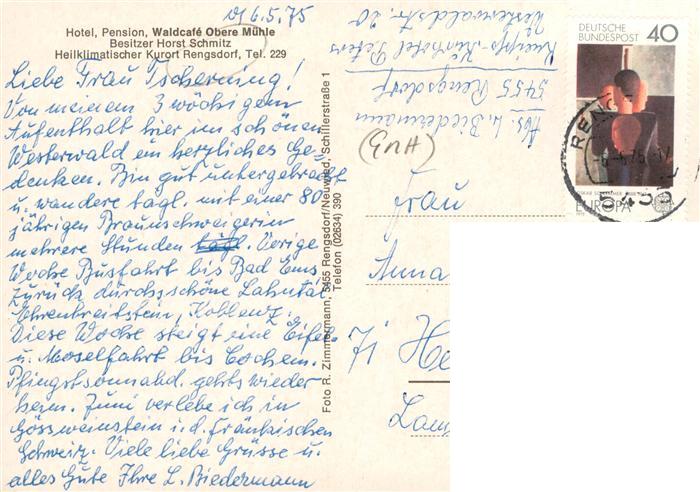 d. 6.5.75
Hotel, Pension, Waldcafé Obere Mühle
Besitzer Horst Schmitz
Heilklimatischer Kurort Rengsdorf, Tel. 229
Liebe Frau Tscherning!
Von meinem 3 wöchigem
Aufenthalt hier im schönen
Westerwald ein herzliches Ge-
denken. Bin gut untergebracht
u. wandere tägl. mit einer 80
jährigen Braunschweigerin
mehrere Stunden tägl. Vorige
Woche Busfahrt bis Bad Ems
zurück durchs schöne Lahntal
Ehrenbreitstein, Koblenz.
Diese Woche steigt eine Eifel
u. Moselfahrt bis Cochem.
Pfingstsonnabd. gehts wieder
heim. Juni verlebe ich in
Gössweinstein i. d. Fränkischen
Schweiz. Viele liebe Grüsse u.
alles Gute Ihre L. Biedermann
Foto R. Zimmermann, 5455 Rengsdorf/Neuwied, Schillerstraße 1
Telefon (02634) 390
Abs. L. Biedermann
5455 Rengsdorf
Kneipp-Kurhotel Peters
Westerwaldstr. 20
(GNH)
DEUTSCHE
BUNDESPOST
40
EUROPA
Frau
Anna
71 He